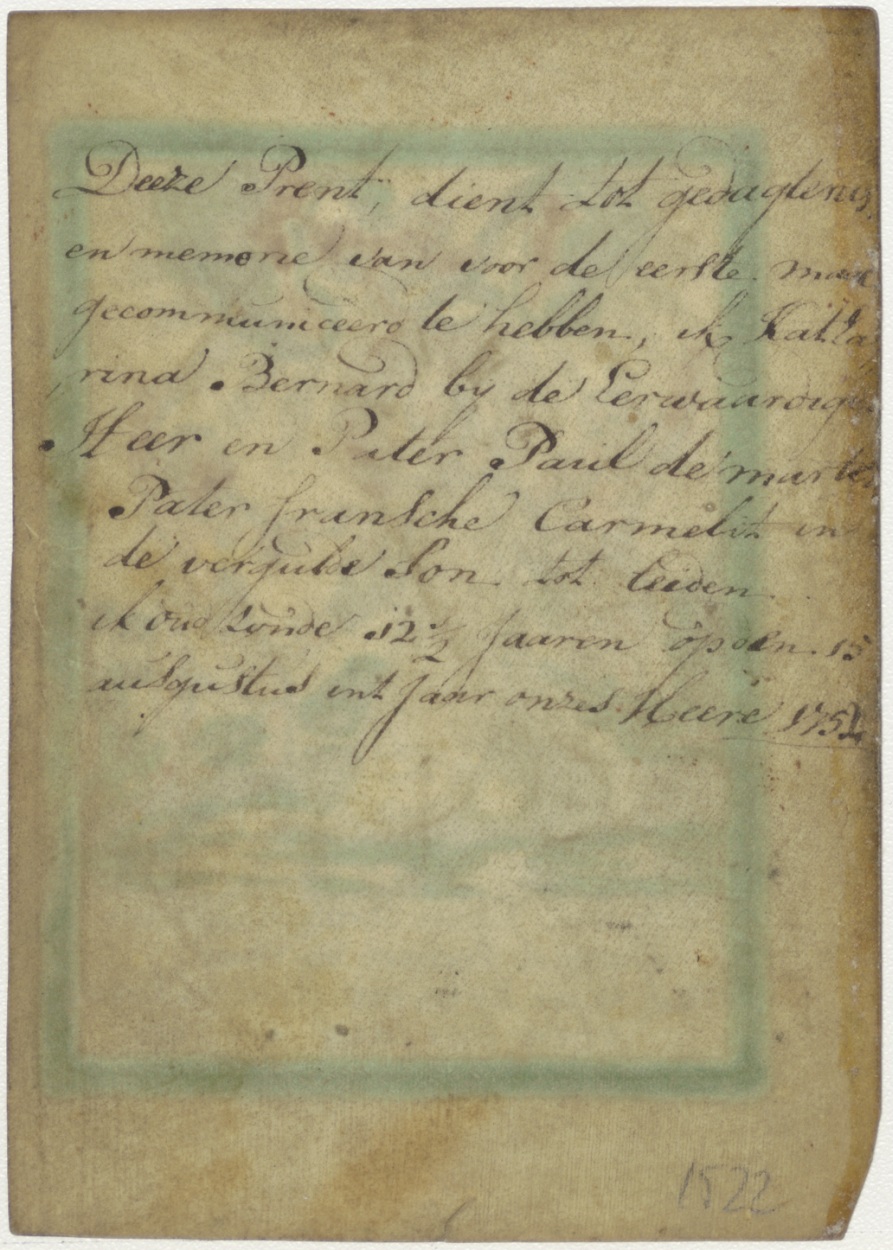 Deeze Prent, dient tot gedagtenis
en memorie van voor de eerste maal
gecommuniceerd te hebben, ik Katha
rina Bernard by de Eerwaardige
Heer en Pater Paul de
Pater fransche Carmelit in
de vergulde Son tot leiden
ik oud zoude 12 1/2 Jaaren op den 15
ausgustus int Jaar onzes Heere
1522